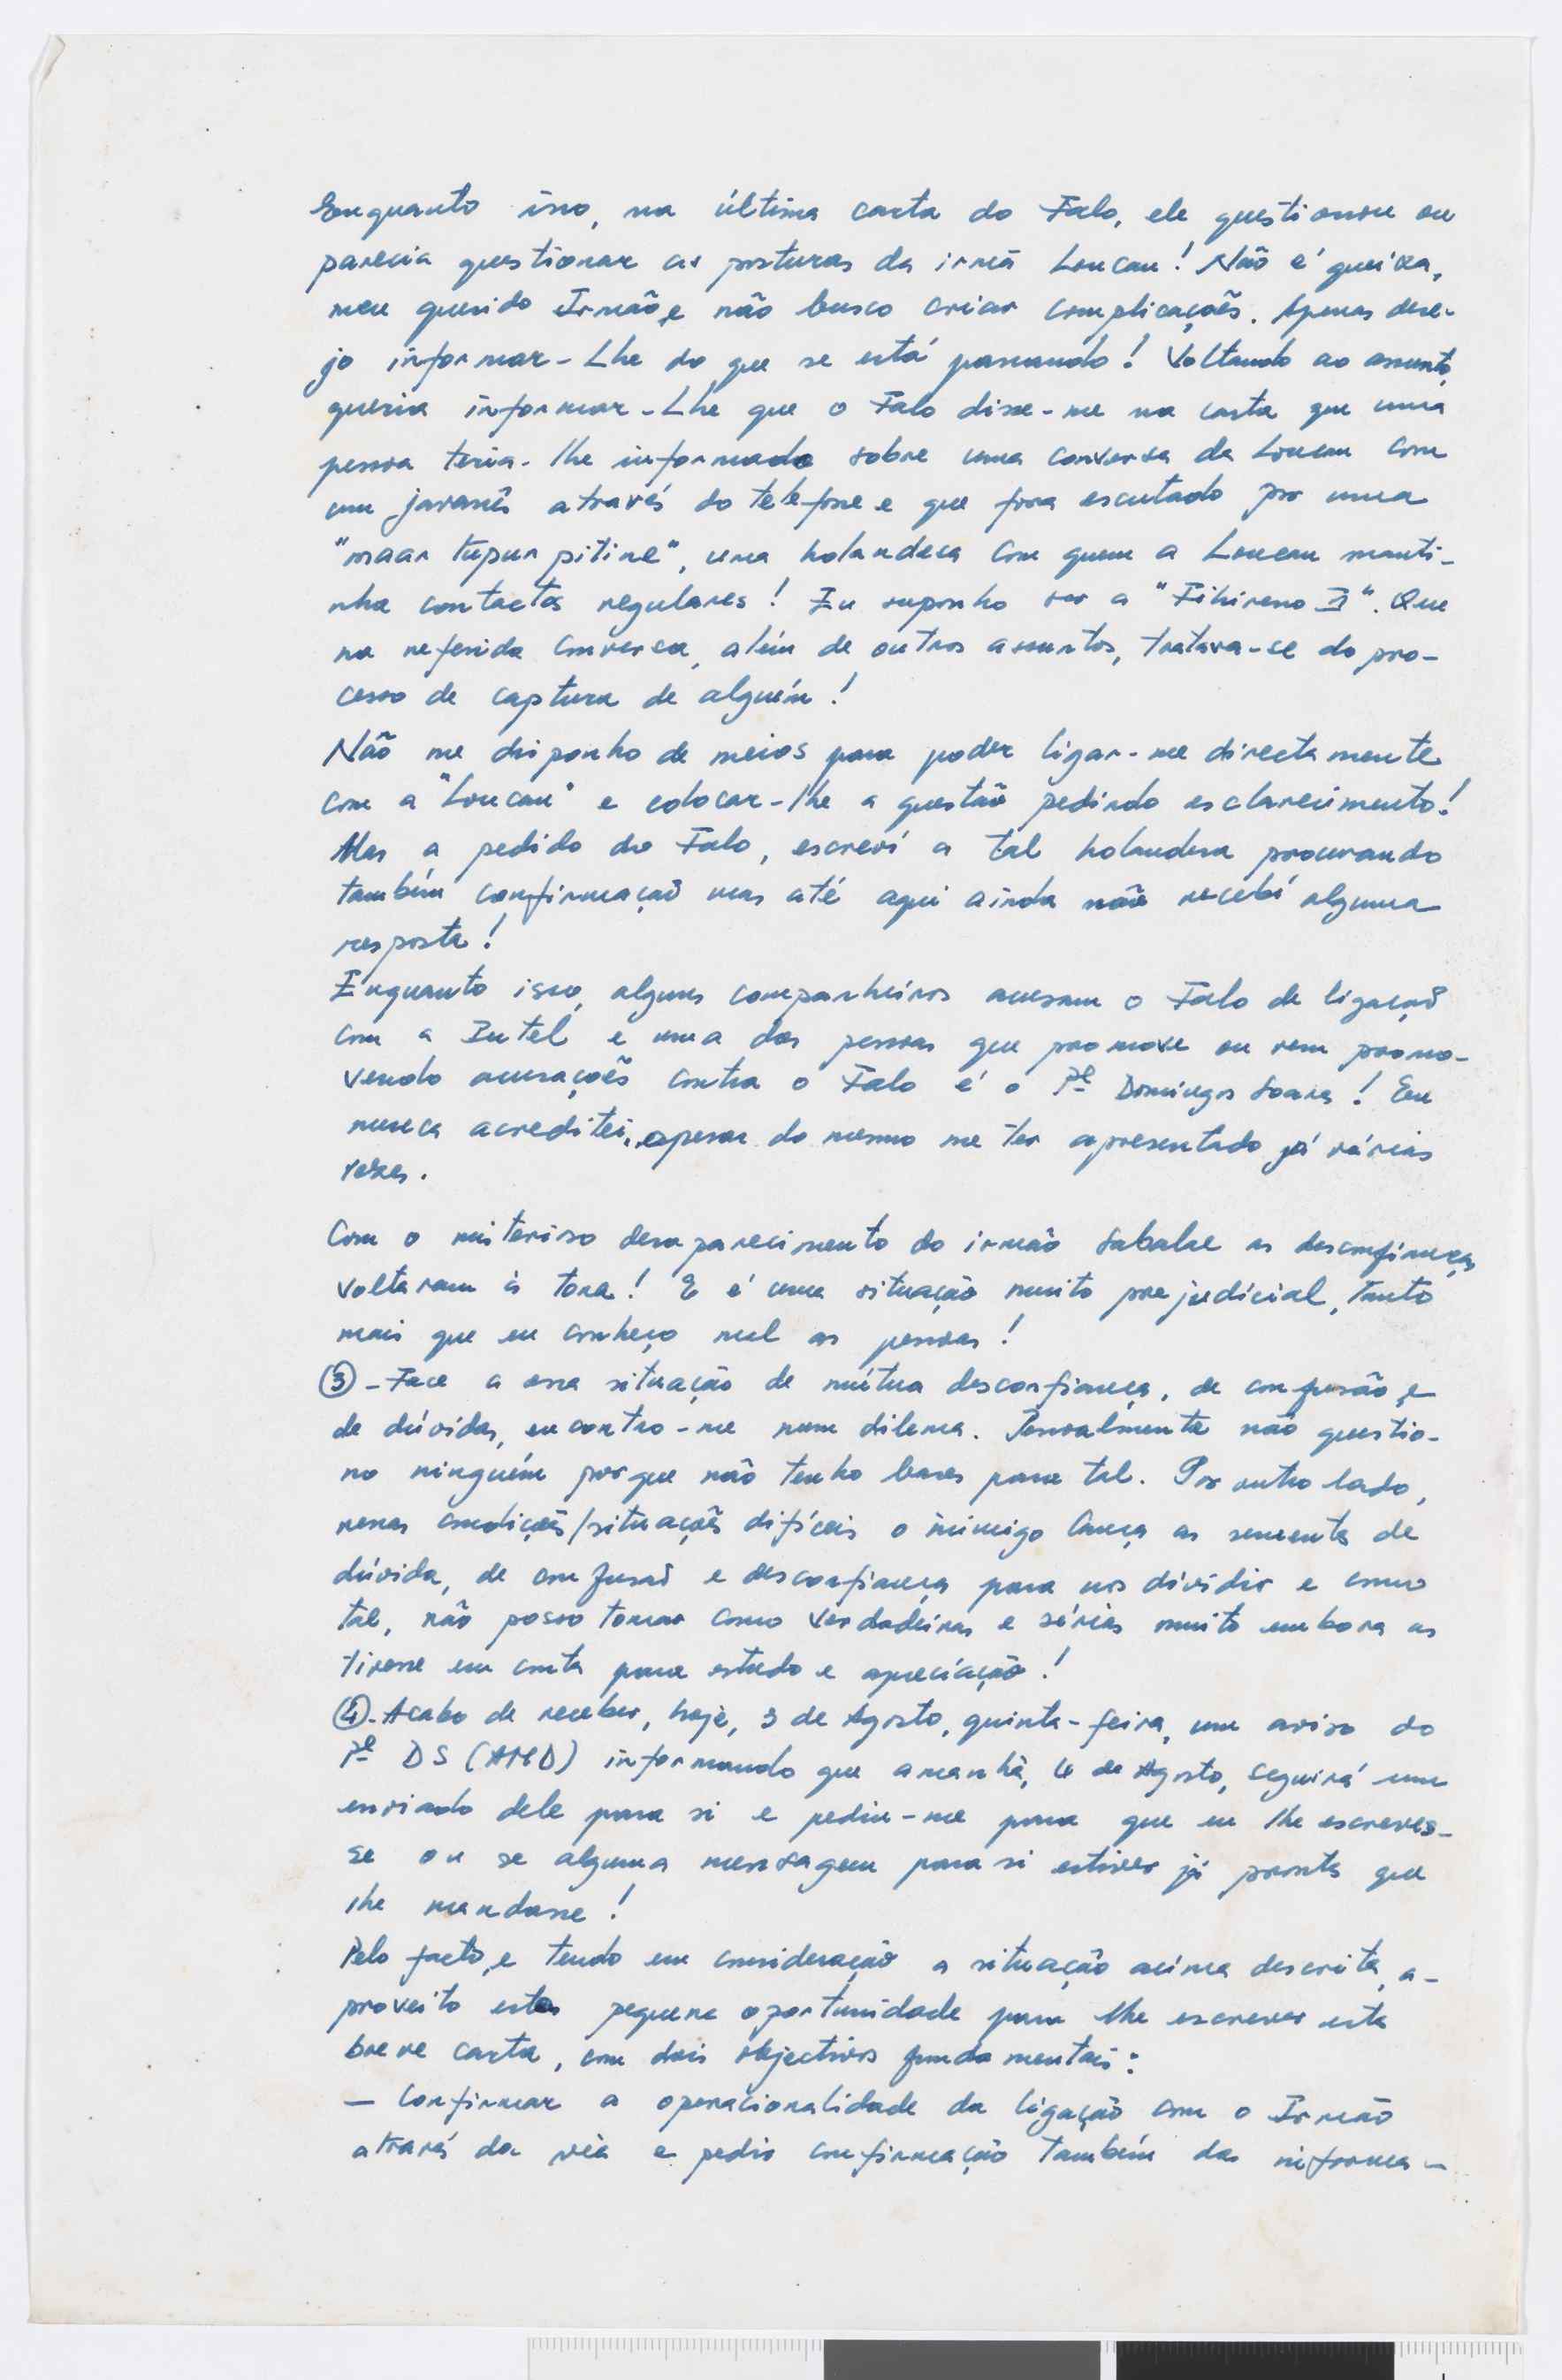 Enquanto isso, na última carta do Falo, ele questionou ou
parecia questionar as posturas da irmã Loucau! Não é queixa,
meu querido Irmão, e não busco criar complicações. Apenas dese-
jo informar-Lhe do que se está passando! Voltando ao assunto,
queria informar-Lhe que o Falo disse-me na carta que uma
pessoa teria-lhe informado sobre uma conversa da Loucau com
um javanês através do telefone e que fora escutado por uma
"maar tupur pitine", uma holandesa com quem a Loucau manti-
nha contactos regulares! Eu suponho ser a "Fihireno I". Que
na referida conversa, além de outros assuntos, tratava-se do pro-
cesso de captura de alguém!
Não me disponho de meios para poder ligar-me directamente
com a "Loucau" e colocar-lhe a questão pedindo esclarecimento!
Mas a pedido do Falo, escreví a tal holandesa procurando
também confirmação mas até aqui ainda não recebí alguma
resposta!
Enquanto isso, alguns companheiros acusam o Falo de ligação
com a Intel e uma das pessoas que promove ou vem promo-
vendo acusações contra o Falo é o Pe Domingos Soares! Eu
nunca acreditei, apesar do mesmo me ter apresentado já várias
vezes.
Com o misterioso desaparecimento do irmão Sabalae as desconfianças
voltaram à tona! E é uma situação muito prejudicial, tanto
mais que eu conheço mal as pessoas!
③ - Face a essa situação de mútua desconfiança, de confusão e
de dúvidas, encontro-me num dilema. Pessoalmente não questio-
no ninguém porque não tenho bases para tal. Por outro lado,
nessas condições/situações difíceis o inimigo lança as sementes de
dúvida, de confusão e desconfiança para nos dividir e como
tal, não posso tomar como verdadeiras e sérias muito embora as
tivesse em conta para estudo e apreciação!
④ - Acabo de receber, hoje, 3 de Agosto, quinta-feira, um aviso do
Pe DS (AMD) informando que amanhã, 4 de Agosto, seguirá um
enviado dele para si e pediu-me para que eu lhe escreves-
se ou se alguma mensagem para si estiver já pronta que
lhe mandasse!
Pelo facto, e tendo em consideração a situação acima descrita, a-
proveito esta pequena oportunidade para lhe escrever esta
breve carta, com dois objectivos fundamentais:
— Confirmar a operacionalidade da ligação com o Irmão
através da via e pedir confirmação também das informa-